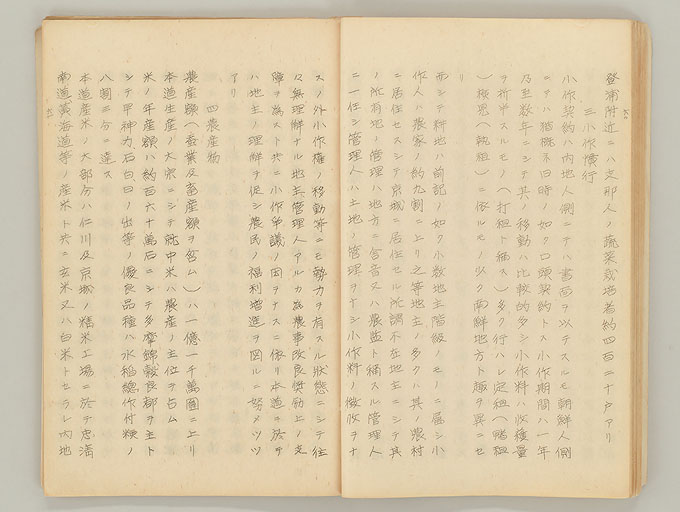 登浦附近ニハ支那人ノ蔬菜栽培者約四百二十戸アリ
三小作慣行
小作契約ハ内地人側ニテハ書面ヲ以テスルモ朝鮮人側
ニテハ猶概ネ旧時ノ如ク口頭契約トス小作期間ハ一年
乃至数年ニシテ其ノ移動ハ比較的多シ小作料ハ收穫量
ヲ折半スルモノ(打租ト稱ス)多ク行ハレ定租(賭租
)検見(執租)ニ依ルモノ少ク南鮮地方ト趣ヲ異ニセ
リ
而シテ耕地ハ前記ノ如ク小数地主階級ノモノニ属シ小
作人ハ農家ノ約九割ニ上リ之等地主ノ多クハ其ノ農村
ニ居住セスシテ京城ニ居住セル所謂不在地主ニシテ其
ノ所有地ノ管理ハ地方ニ舎音又ハ農監ト稱スル管理人
ニ一任シ管理人ハ土地ノ管理ヲナシ小作料ノ徴收ヲナ
スノ外小作權ノ移動等ニモ勢力ヲ有スル状態ニシテ往
々無理解ナル地主管理人アルカ為農事改良奨励上ノ支
障ヲ為スト共ニ小作争議ノ因ヲナスニ依リ本道ニ於テ
ハ地主ノ理解ヲ促シ農民ノ福利増進ヲ図ルニ努メツツ
アリ
四農産物
農産額(蚕業及畜産額ヲ含ム)ハ一億一千萬圓ニ上リ
本道生産ノ大宗ニシテ就中米ハ農産ノ主位ヲ占ム
米ノ年産額ハ約百六十萬石ニシテ多摩錦穀良都ヲ主ト
シテ早神力石臼日ノ出等ノ優良品種ハ水稲總作付粳ノ
八割二分ニ達ス
本道産米ノ大部分ハ仁川及京城ノ精米工場ニ於テ忠清
南道黄海道等ノ産米ト共ニ玄米又ハ白米トセラレ内地